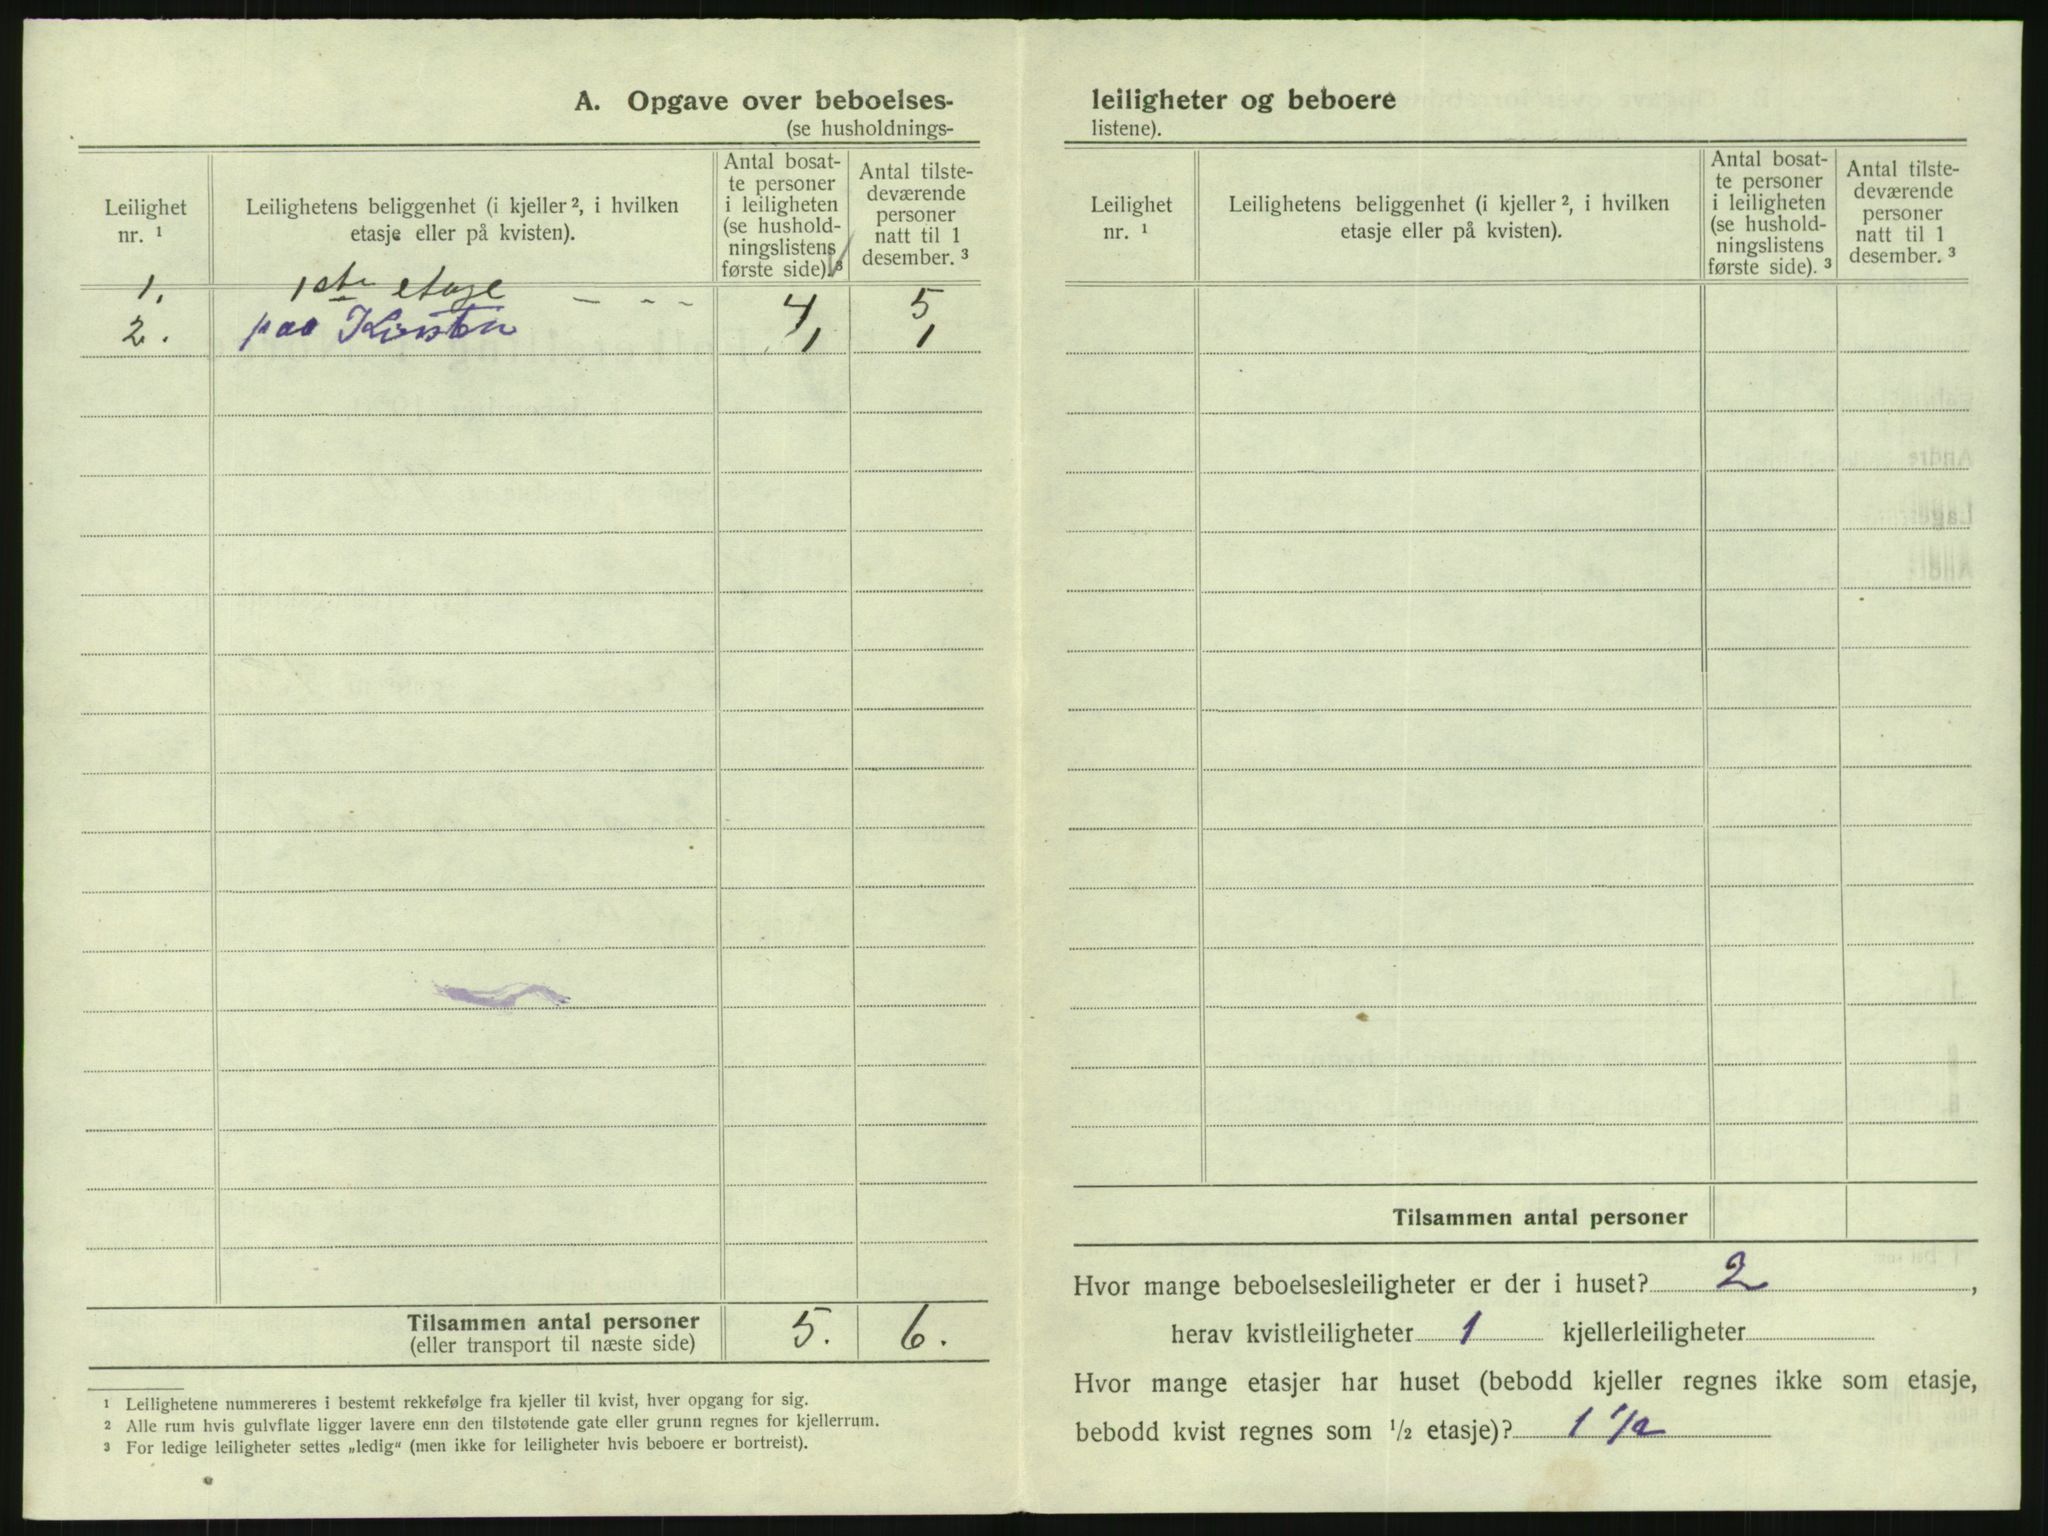 A. Opgave over beboelses-
(se husholdnings-
Leilighet
nr. ¹
Leilighetens beliggenhet (i kjeller ², i hvilken
etasje eller på kvisten).
Antal bosat-
te personer
i leiligheten
(se hushold-
ningslistens
første side). ³
Antal tilste-
deværende
personer
natt til 1
desember. ³
1. 1ste etage - - - 4 5
2. paa Kvisten 1 1
Tilsammen antal personer 5. 6.
(eller transport til næste side)
¹ Leilighetene nummereres i bestemt rekkefølge fra kjeller til kvist, hver opgang for sig.
² Alle rum hvis gulvflate ligger lavere enn den tilstøtende gate eller grunn regnes for kjellerrum.
³ For ledige leiligheter settes „ledig“ (men ikke for leiligheter hvis beboere er bortreist).
leiligheter og beboere
listene).
Leilighet
nr. ¹
Leilighetens beliggenhet (i kjeller ², i hvilken
etasje eller på kvisten).
Antal bosat-
te personer
i leiligheten
(se hushold-
ningslistens
første side). ³
Antal tilste-
deværende
personer
natt til 1
desember. ³
Tilsammen antal personer
Hvor mange beboelsesleiligheter er der i huset? 2 ,
herav kvistleiligheter 1 kjellerleiligheter
Hvor mange etasjer har huset (bebodd kjeller regnes ikke som etasje,
bebodd kvist regnes som ½ etasje)? 1 1/2